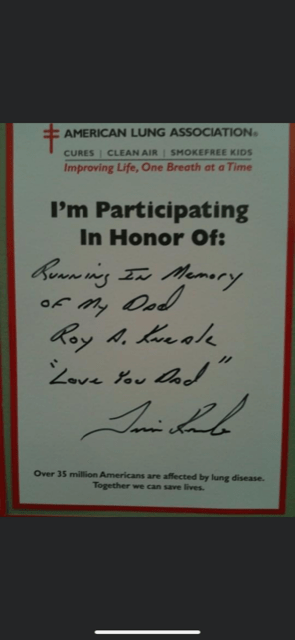 AMERICAN LUNG ASSOCIATION®
CURES | CLEAN AIR | SMOKEFREE KIDS
Improving Life, One Breath at a Time
I'm Participating
In Honor Of:
Running In Memory
of My Dad
Roy A.
"Love You Dad"
Over 35 million Americans are affected by lung disease.
Together we can save lives.